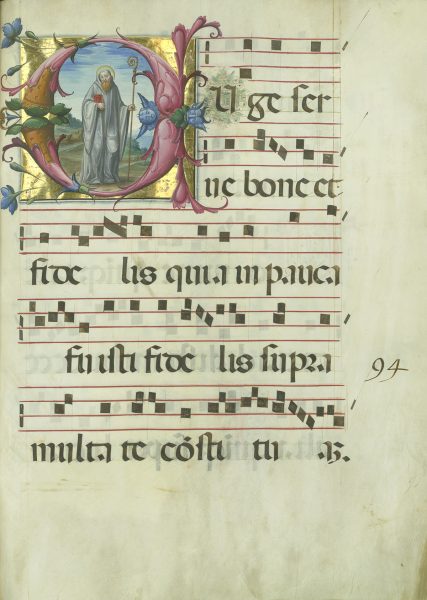 EU ge ser
ue bone et
fide lis quia in pauca
fu isti fide lis supra
94
multa te cōsti tu aꝫ.